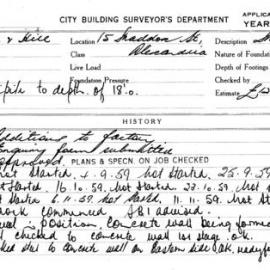 CITY BUILDING SURVEYOR'S DEPARTMENT APPLICA
YEAR
& Hill Location 15 Maddox St, Description
Class Alexandria Nature of Foundation
Live Load Depth of Footings
Foundation Pressure Checked by
pile to depth of 18'.0. Estimate
HISTORY
Additions to factory
Enquiry form submitted
Approved. PLANS & SPECN. ON JOB CHECKED
not Started. 4.9.59 not Started. 25.9.59
Started. 16.10.59. not Started. 23.10.59. not
Started 6.11.59. not Started. 11.11.59. not St
work commenced. advised.
in position. Concrete wall being formed
checked to concrete wall 1st stage. O.K.
steel to concrete wall on Eastern side O.K. ready